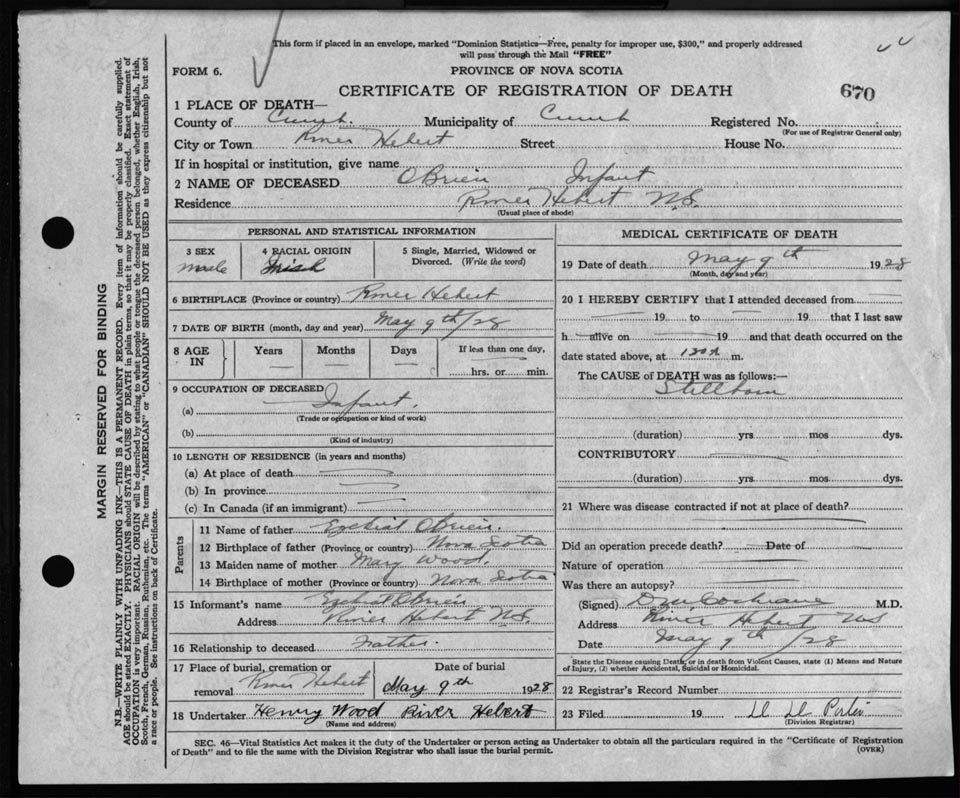 This form if placed in an envelope, marked "Dominion Statistics—Free, penalty for improper use, $300," and properly addressed
will pass through the Mail "FREE"
FORM 6.
PROVINCE OF NOVA SCOTIA
CERTIFICATE OF REGISTRATION OF DEATH
670
1 PLACE OF DEATH—
County of Cumb. Municipality of Cumb Registered No.
(For use of Registrar General only)
City or Town River Hebert Street House No.
If in hospital or institution, give name
2 NAME OF DECEASED OBrien Infant
Residence River Hebert N.S.
(Usual place of abode)
PERSONAL AND STATISTICAL INFORMATION
3 SEX 4 RACIAL ORIGIN 5 Single, Married, Widowed or
Divorced. (Write the word)
male Irish
6 BIRTHPLACE (Province or country) River Hebert
7 DATE OF BIRTH (month, day and year) May 9th/28
8 AGE IN Years Months Days If less than one day,
hrs. or min.
9 OCCUPATION OF DECEASED
(a) Infant.
(Trade or occupation or kind of work)
(b)
(Kind of industry)
10 LENGTH OF RESIDENCE (in years and months)
(a) At place of death
(b) In province
(c) In Canada (if an immigrant)
Parents
11 Name of father OBrien.
12 Birthplace of father (Province or country) Nova Scotia
13 Maiden name of mother Mary Wood.
14 Birthplace of mother (Province or country) Nova Scotia
15 Informant's name OBrien
Address River Hebert N.S.
16 Relationship to deceased Father.
17 Place of burial, cremation or Date of burial
removal River Hebert May 9th 1928
18 Undertaker Henry Wood River Hebert
(Name and address)
MEDICAL CERTIFICATE OF DEATH
19 Date of death May 9th 1928
(Month, day and year)
20 I HEREBY CERTIFY that I attended deceased from
19 to 19 that I last saw
h alive on 19 and that death occurred on the
date stated above, at m.
The CAUSE of DEATH was as follows:—
Stillborn
(duration) yrs. mos dys.
CONTRIBUTORY
(duration) yrs. mos dys.
21 Where was disease contracted if not at place of death?
Did an operation precede death? Date of
Nature of operation
Was there an autopsy?
(Signed) Cochrane M.D.
Address River Hebert NS
Date May 9th/28
State the Disease causing Death, or in death from Violent Causes, state (1) Means and Nature
of Injury, (2) whether Accidental, Suicidal or Homicidal.
22 Registrar's Record Number
23 Filed 19
(Division Registrar)
SEC. 46—Vital Statistics Act makes it the duty of the Undertaker or person acting as Undertaker to obtain all the particulars required in the "Certificate of Registration
of Death" and to file the same with the Division Registrar who shall issue the burial permit.
(OVER)
MARGIN RESERVED FOR BINDING
N.B.—WRITE PLAINLY WITH UNFADING INK—THIS IS A PERMANENT RECORD. Every item of information should be carefully supplied.
AGE should be stated EXACTLY. PHYSICIANS should STATE CAUSE OF DEATH in plain terms, so that it may be properly classified. Exact statement of
OCCUPATION is very important. RACIAL ORIGIN will be described by stating to what people or tongue the deceased person belonged, whether English, Irish,
Scotch, French, German, Russian, Ruthenian, etc. The terms "AMERICAN" or "CANADIAN" SHOULD NOT BE USED as they express citizenship but not
a race or people. See instructions on back of Certificate.